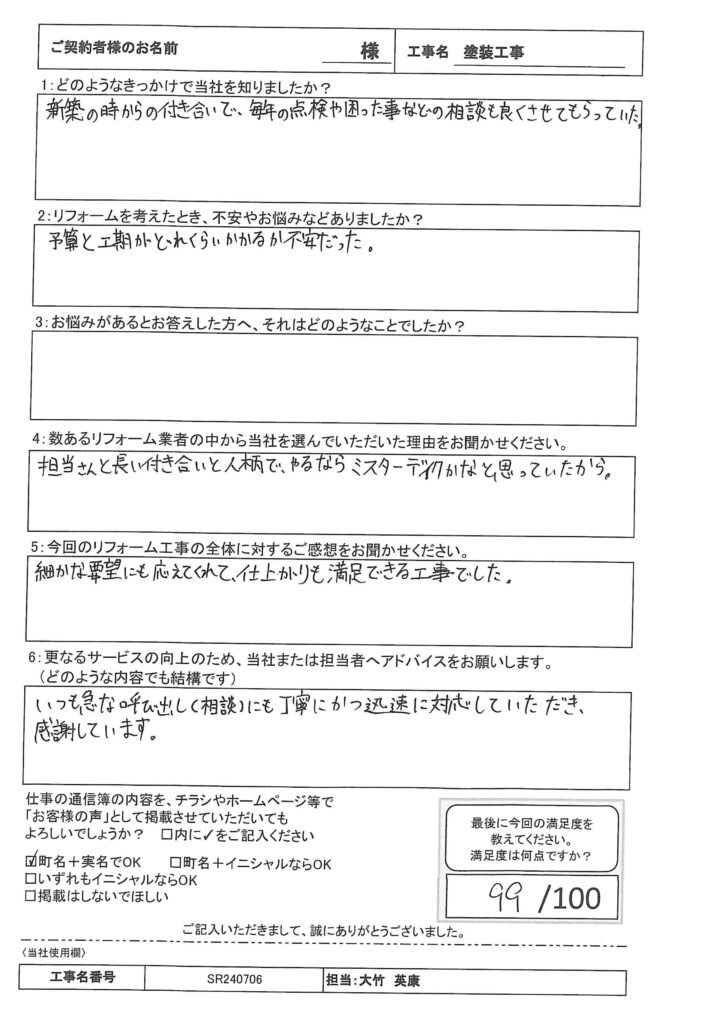 ご契約者様のお名前 様 工事名 塗装工事
1:どのようなきっかけで当社を知りましたか?
新築の時からの付き合いで、毎年の点検や困った事などの相談も良くさせてもらっていた。
2:リフォームを考えたとき、不安やお悩みなどありましたか?
予算と工期がどれくらいかかるか不安だった。
3:お悩みがあるとお答えした方へ、それはどのようなことでしたか?
4:数あるリフォーム業者の中から当社を選んでいただいた理由をお聞かせください。
担当さんと長い付き合いと人柄で、やるならミスターデイクかなと思っていたから。
5:今回のリフォーム工事の全体に対するご感想をお聞かせください。
細かな要望にも応えてくれて、仕上がりも満足できる工事でした。
6:更なるサービスの向上のため、当社または担当者へアドバイスをお願いします。
(どのような内容でも結構です)
いつも急な呼び出し(相談)にも丁寧にかつ迅速に対応していただき、
感謝しています。
仕事の通信簿の内容を、チラシやホームページ等で
「お客様の声」として掲載させていただいても
よろしいでしょうか? □内に✓をご記入ください
☑町名+実名でOK □町名+イニシャルならOK
□いずれもイニシャルならOK
□掲載はしないでほしい
最後に今回の満足度を
教えてください。
満足度は何点ですか?
99 /100
ご記入いただきまして、誠にありがとうございました。
〈当社使用欄〉
工事名番号 SR240706 担当:大竹 英康